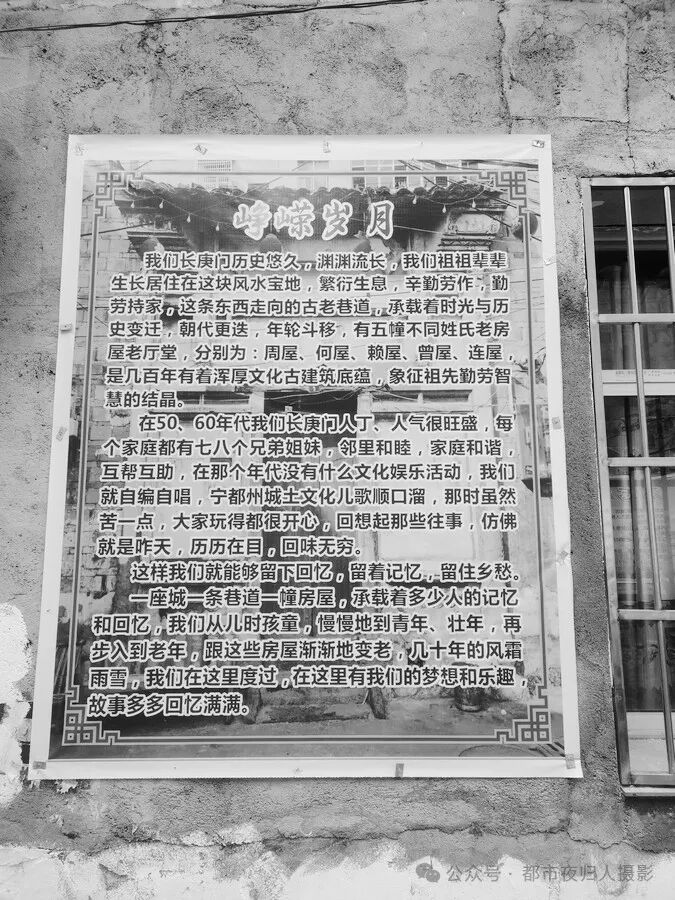 峥嵘岁月
我们长庚门历史悠久，渊渊流长，我们祖祖辈辈
生长居住在这块风水宝地，繁衍生息，辛勤劳作，勤
劳持家，这条东西走向的古老巷道，承载着时光与历
史变迁，朝代更迭，年轮斗移，有五幢不同姓氏老房
屋老厅堂，分别为：周屋、何屋、赖屋、曾屋、连屋，
是几百年有着浑厚文化古建筑底蕴，象征祖先勤劳智
慧的结晶。
在50、60年代我们长庚门人丁、人气很旺盛，每
个家庭都有七八个兄弟姐妹，邻里和睦，家庭和谐，
互帮互助，在那个年代没有什么文化娱乐活动，我们
就自编自唱，宁都州城土文化儿歌顺口溜，那时虽然
苦一点，大家玩得都很开心，回想起那些往事，仿佛
就是昨天，历历在目，回味无穷。
这样我们就能够留下回忆，留着记忆，留住乡愁。
一座城一条巷道一幢房屋，承载着多少人的记忆
和回忆，我们从儿时孩童，慢慢地到青年、壮年，再
步入到老年，跟这些房屋渐渐地变老，几十年的风霜
雨雪，我们在这里度过，在这里有我们的梦想和乐趣，
故事多多回忆满满。
公众号·都市夜归人摄影